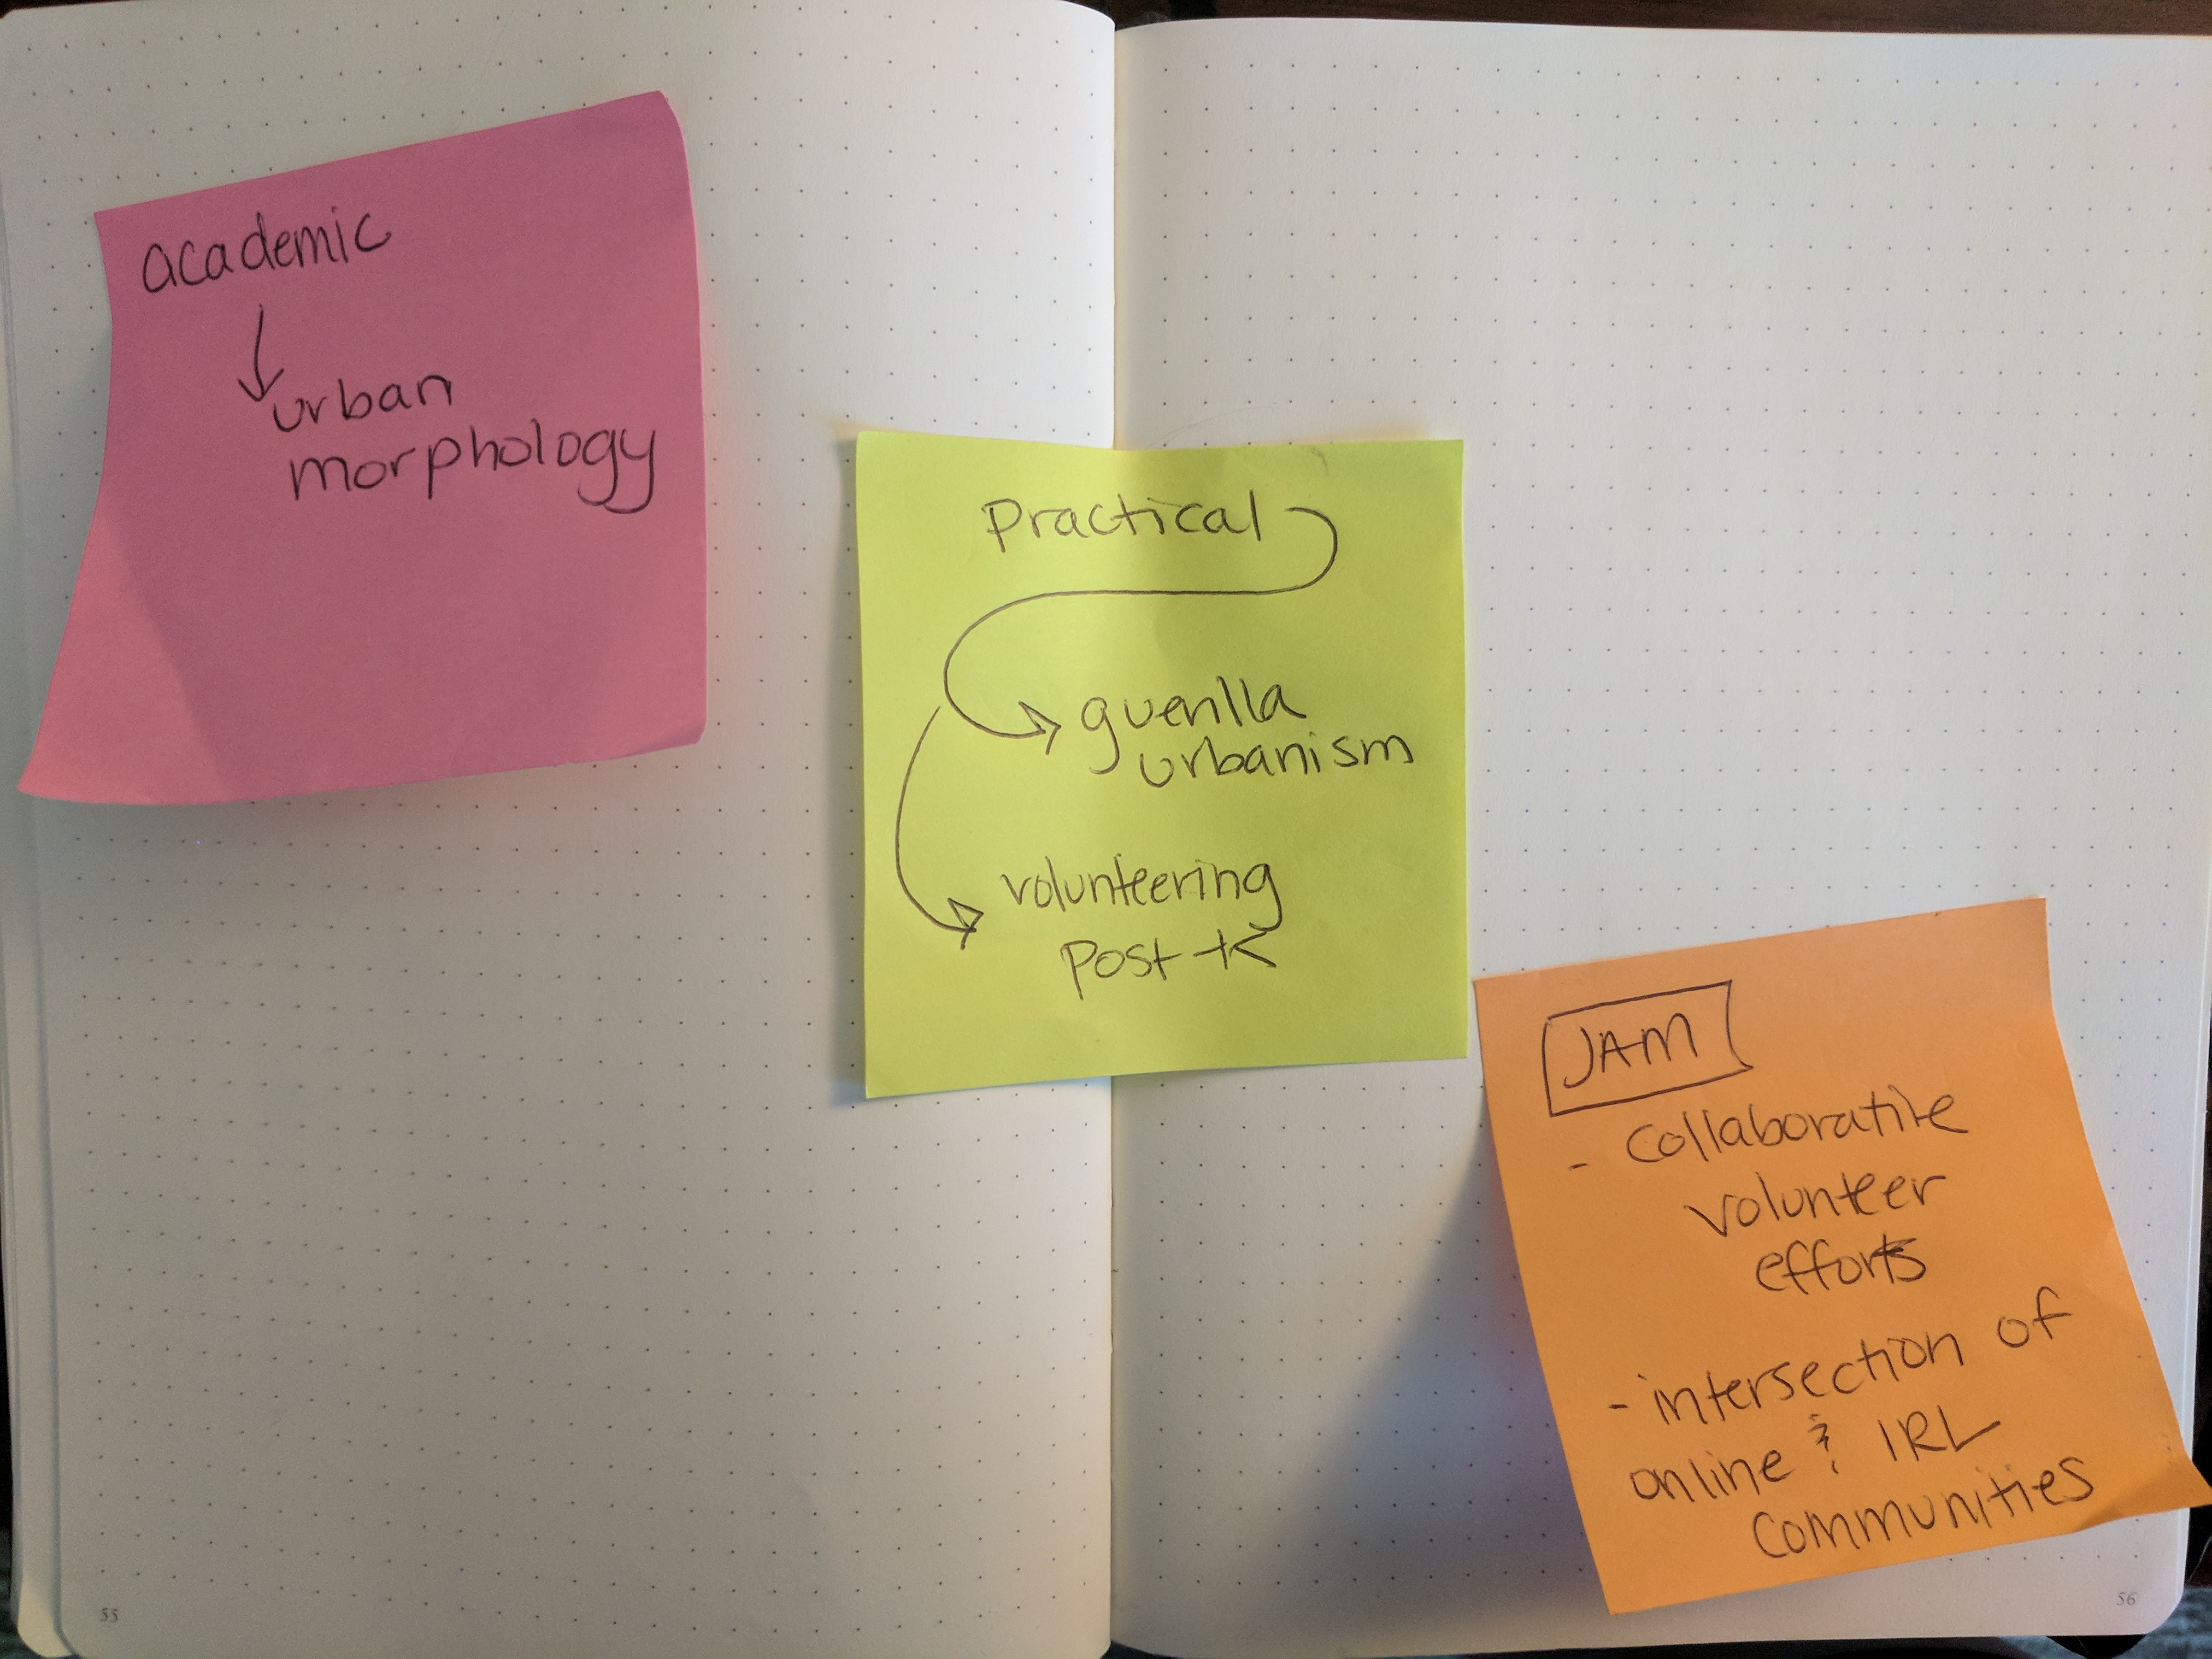 academic
urban
morphology
Practical
guerilla
urbanism
volunteering
post-K
JAM
- collaborative
volunteer
efforts
- intersection of
online & IRL
communities
55
56